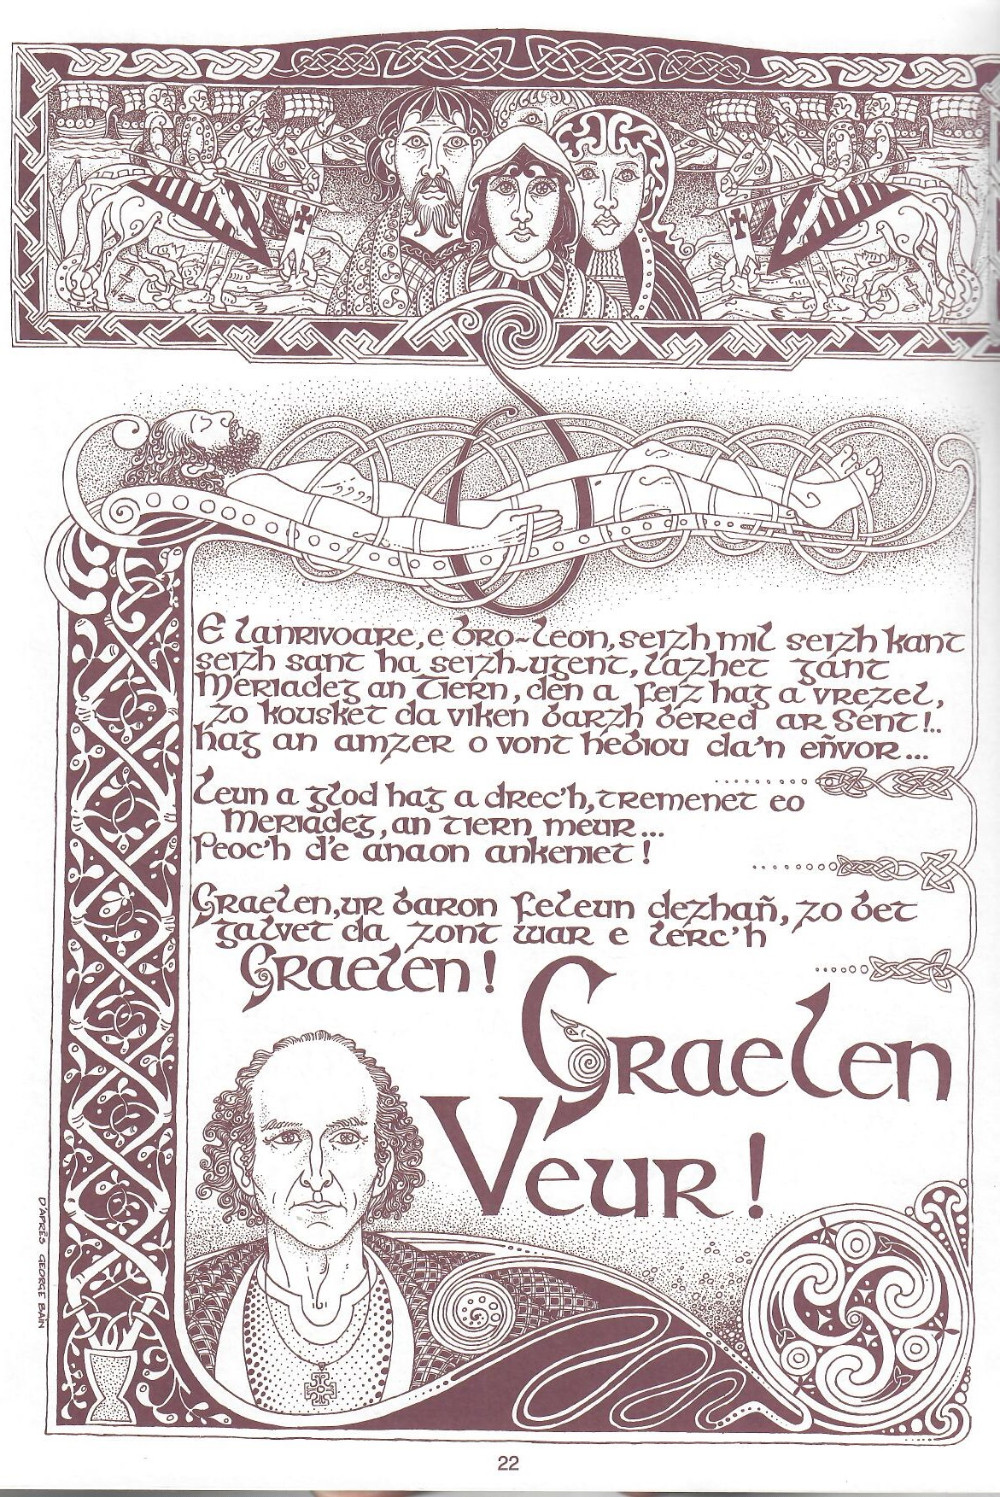 E Lanrivoare, e bro-Leon, seizh mil seizh kant
seizh sant ha seizh-ugent, lazhet gant
Meriadeg an Tiern, den a feiz hag a vrezel,
zo kousket da viken barzh bered ar Sent!..
hag an amzer o vont hebiou da'n eñvor...
Leun a glod hag a drec'h, tremenet eo
Meriadeg, an tiern meur...
Peoc'h d'e anaon ankeniet!
Graelen, ur baron feleun dezhañ, zo bet
galvet da zont war e lerc'h
Graelen!
Graelen
Veur!
D'APRÈS GEORGE BAIN
22